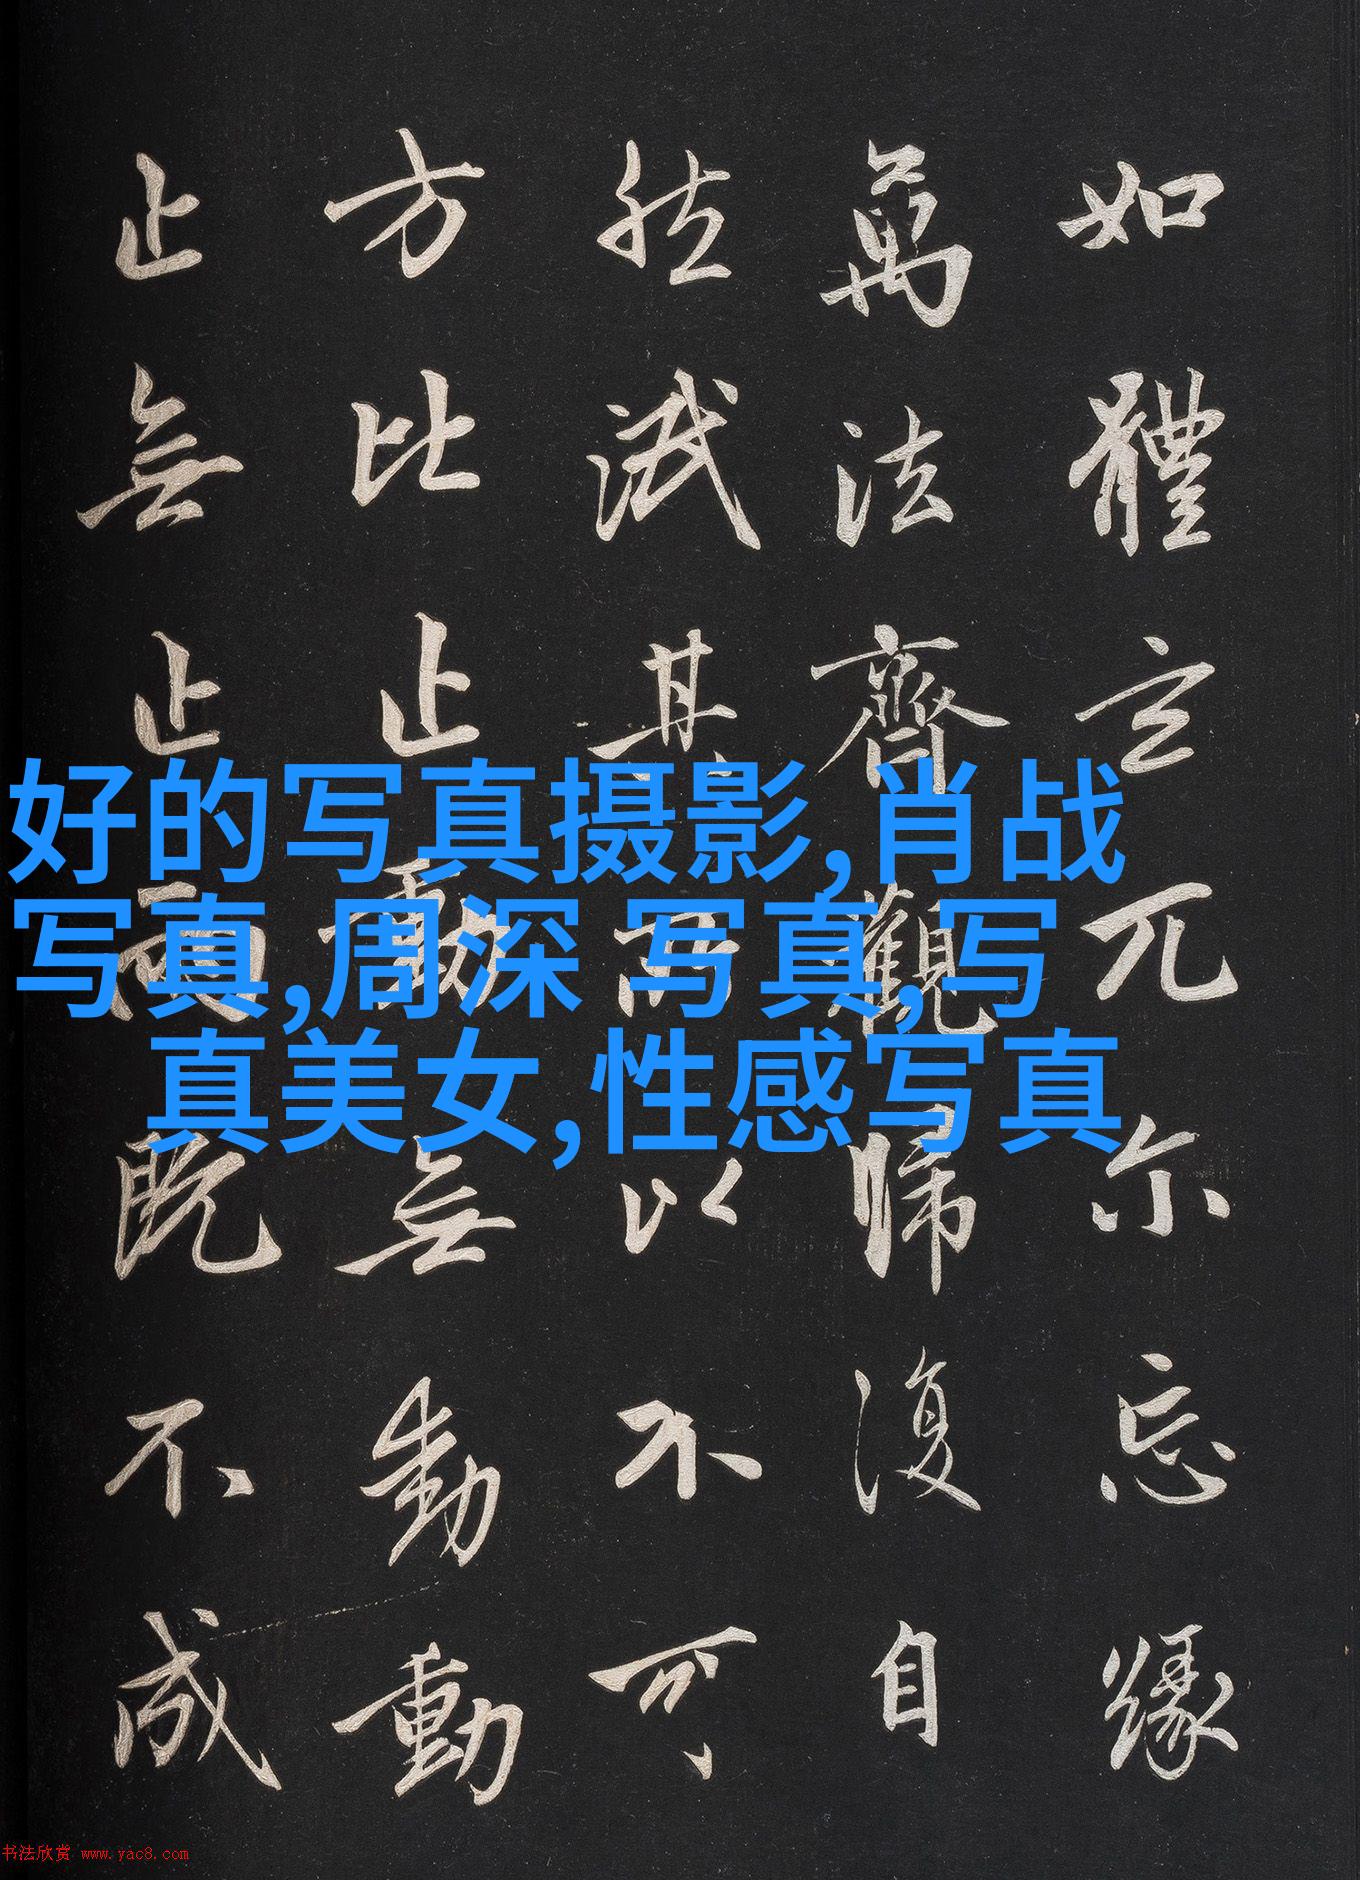 如體玄兀尔忘緣
萬法齊觀歸復自
然泯其所以不可
方比止動無動動
止無止兩既不成
好的写真摄影,肖战
写真,周深 写真,写
真美女,性感写真
书法欣赏 www.yac8.com